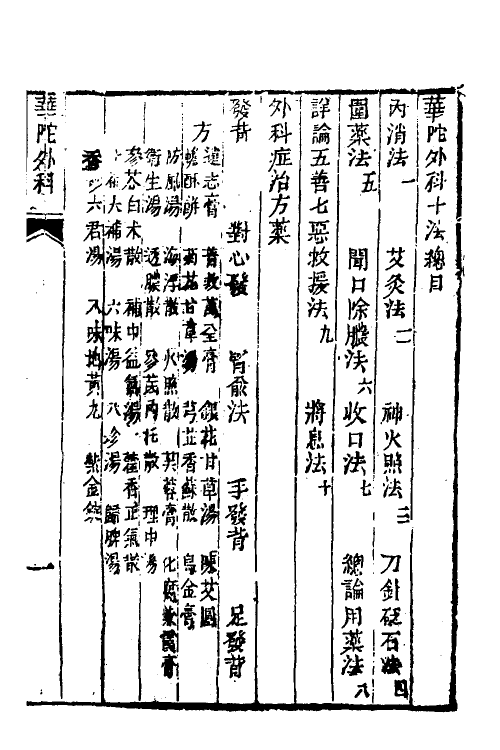 華陀外科十法總目
內消法一 艾灸法二 神火照法三 刀針砭石法四
圍藥法五 開口除膿法六 收口法七 總論用藥法八
詳論五善七惡救援法九 將息法十
外科症治方藥
發背 對心發 腎俞法 手發背 足發背
方 遠志膏 普救萬全膏 銀花甘草湯 陳艾圓
蟾酥餅 菊花甘草湯 芎芷香蘇散 烏金膏
防風湯 海浮散 火照散 芙蓉膏 化腐紫霞膏
衛生湯 透膿散 參茋內托散 理中湯
參苓白朮散 補中益氣湯 藿香正氣散
大補湯 六味湯 八珍湯 歸脾湯
香砂六君湯 八味地黃丸 紫金錠
華陀外科
一